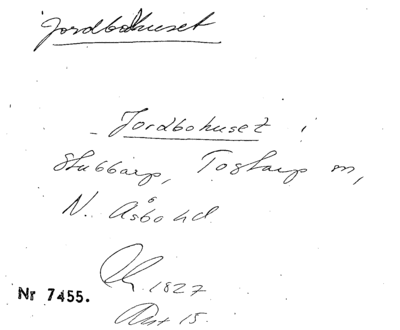 Jordbohuset
Jordbohuset i
Stubbarp, Tostarp m,
N. Åsbo hd
1827
Nr 7455.
15.